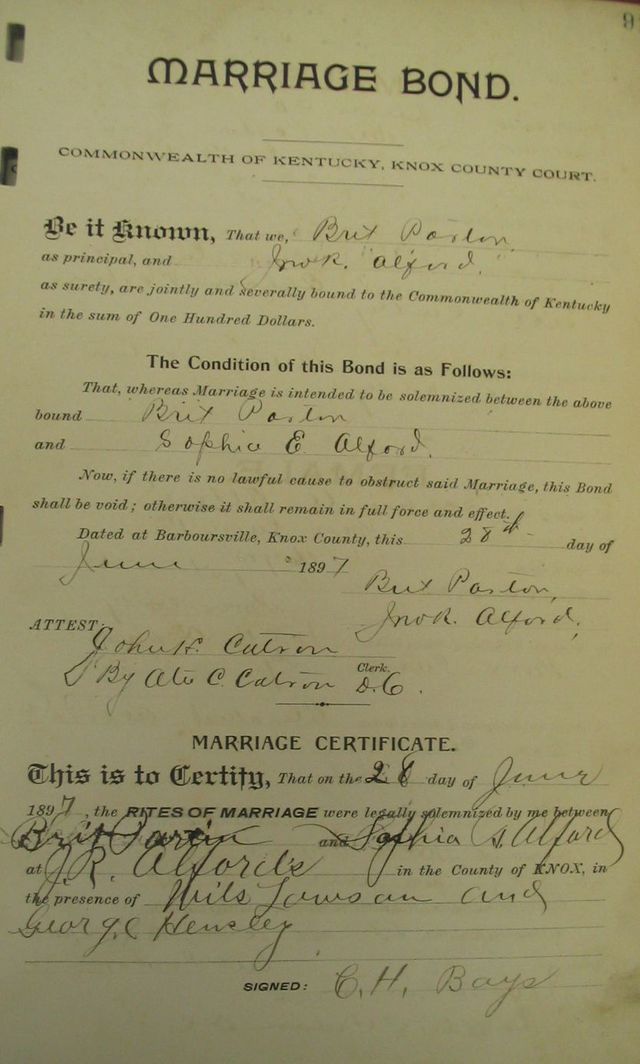 MARRIAGE BOND.
COMMONWEALTH OF KENTUCKY, KNOX COUNTY COURT.
Be it Known, That we, Brit Parton
as principal, and Jno R. Alford,
as surety, are jointly and severally bound to the Commonwealth of Kentucky
in the sum of One Hundred Dollars.
The Condition of this Bond is as Follows:
That, whereas Marriage is intended to be solemnized between the above
bound Brit Parton
and Sophia E Alford,
Now, if there is no lawful cause to obstruct said Marriage, this Bond
shall be void; otherwise it shall remain in full force and effect.
Dated at Barboursville, Knox County, this 28th day of
June 1897
Brit Parton,
Jno R. Alford,
ATTEST:
John H. Catron
Clerk.
By C. Catron D.C.
MARRIAGE CERTIFICATE.
This is to Certify, That on the 28 day of June
1897, the RITES OF MARRIAGE were legally solemnized by me between
Brit Partin and Sophia Alford
at J. R. Alford's in the County of KNOX, in
the presence of Wils Lawson and
George Hensley
SIGNED: C. H. Bays